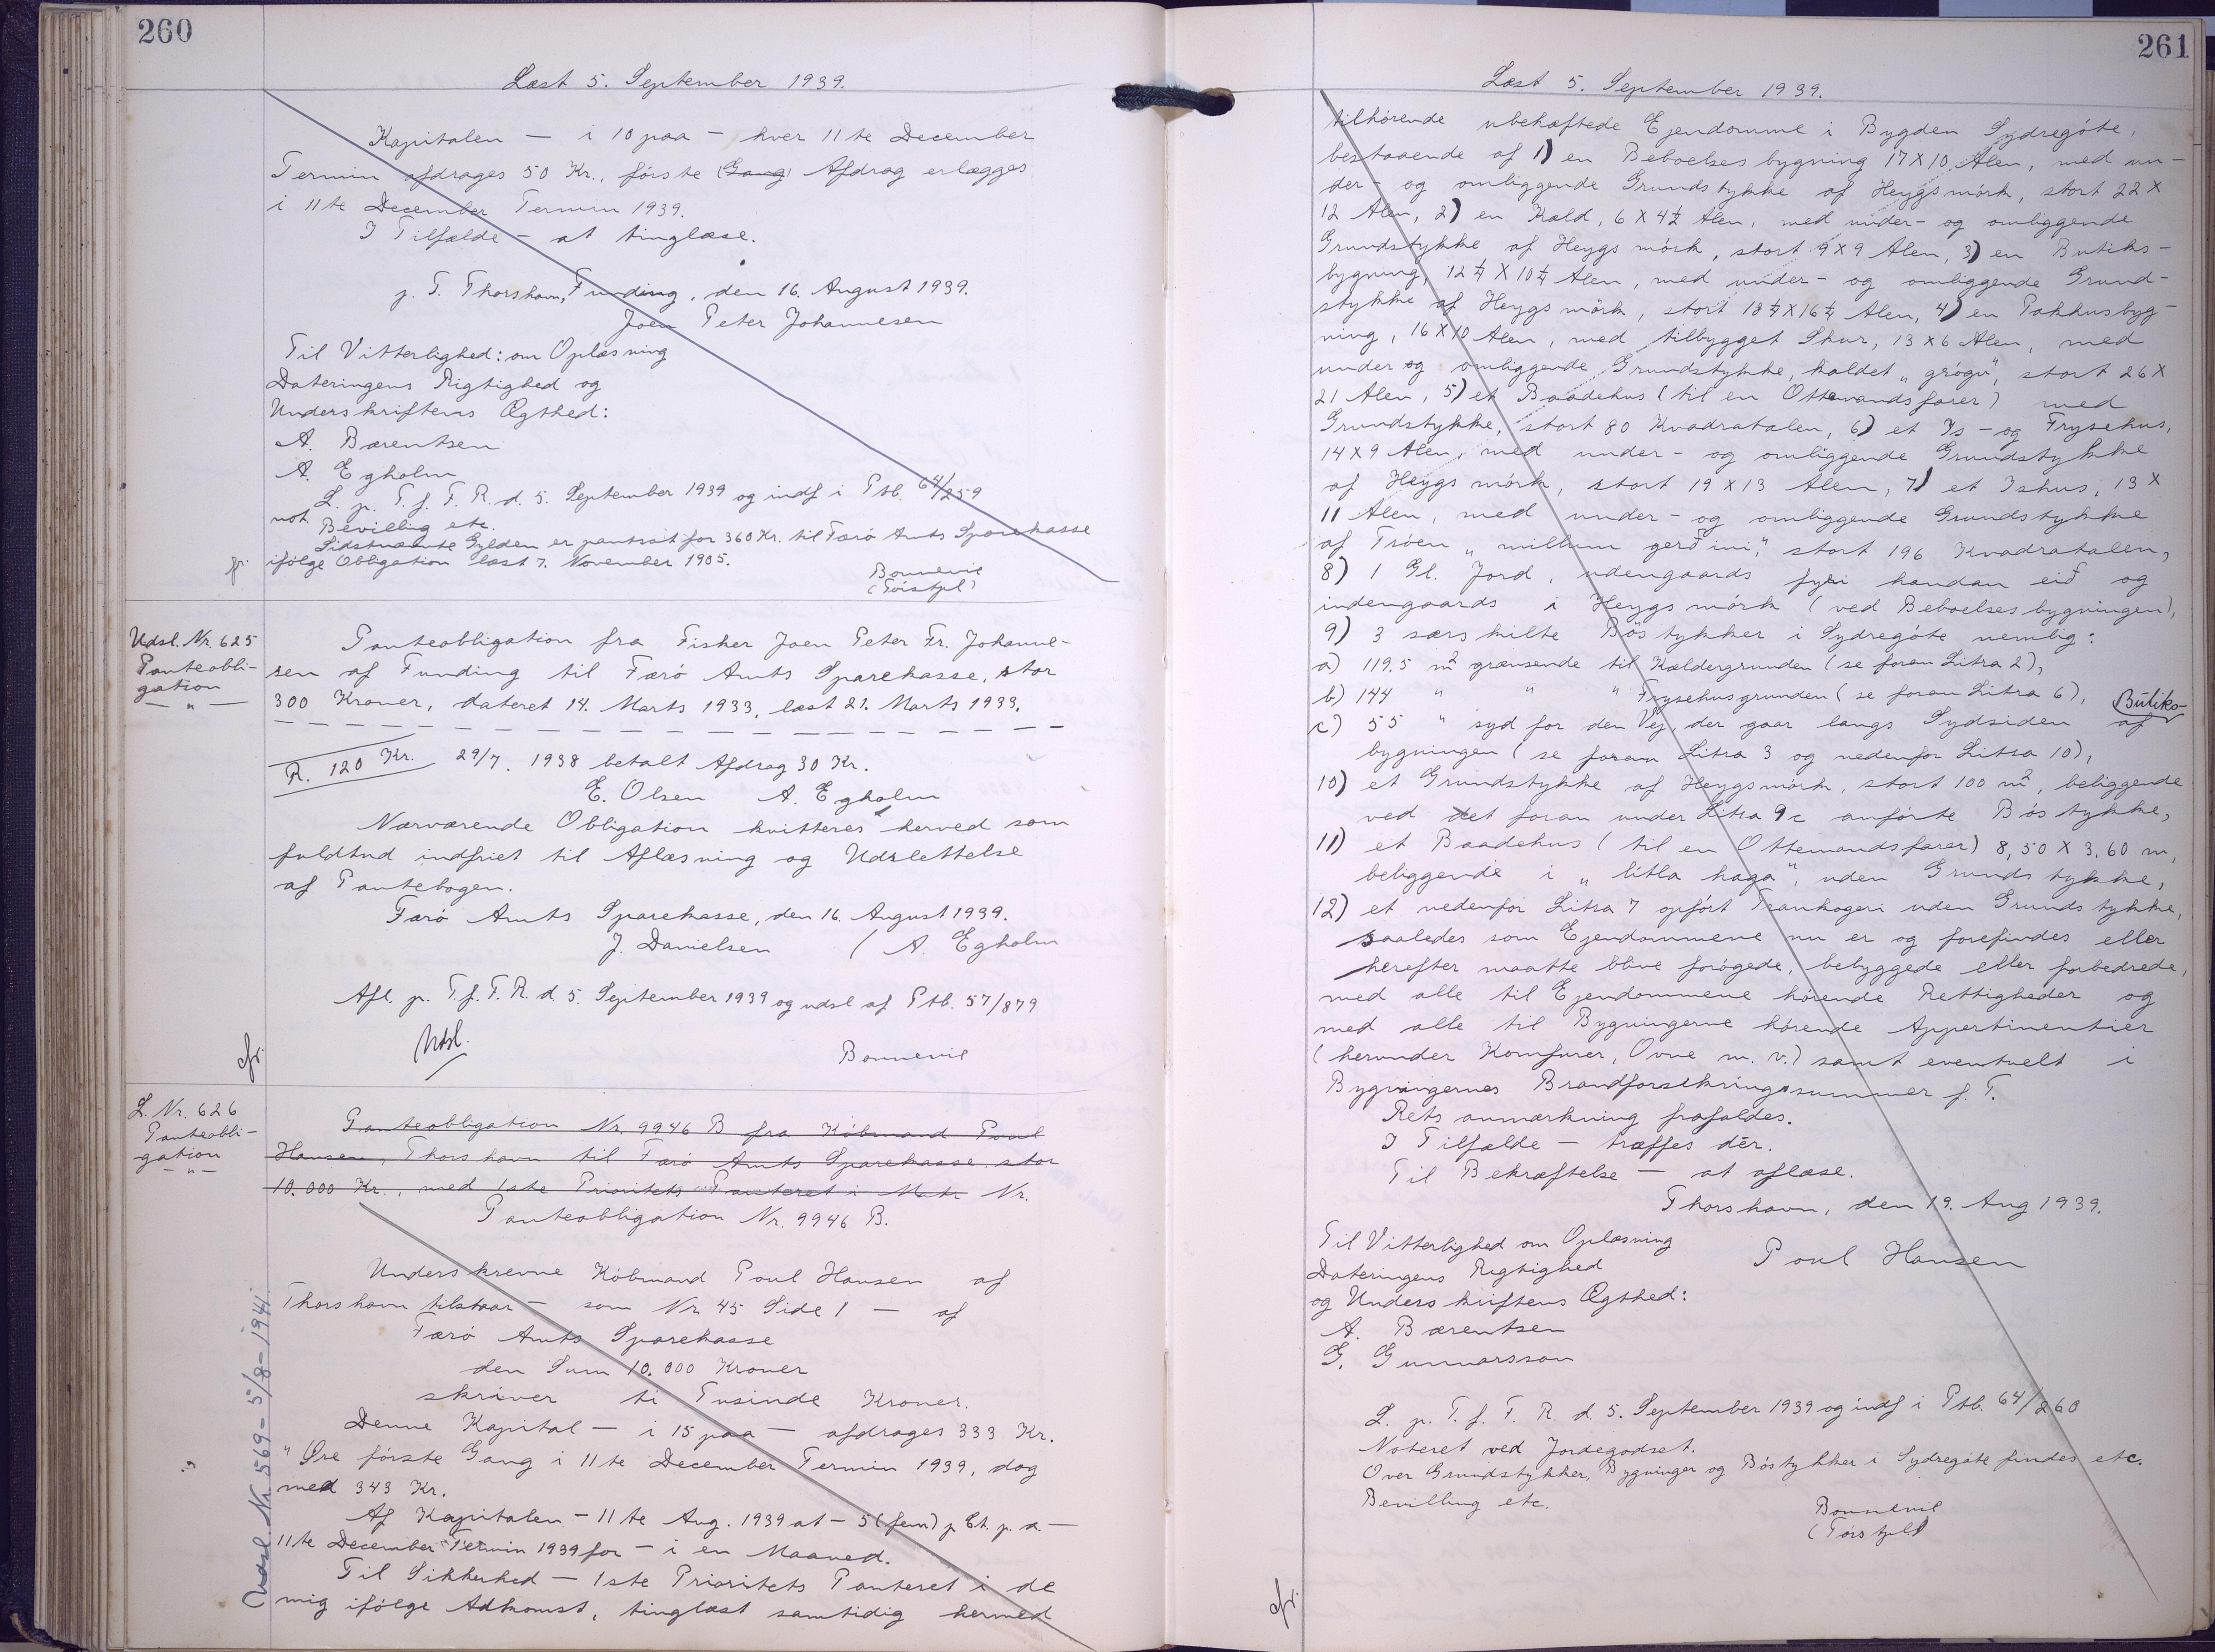 260
Læst 5. September 1939.
Kapitalen — i 10 paa — hver 11te December
Termin afdrages 50 Kr., förste (Gang) Afdrag erlægges
i 11te December Termin 1939.
I Tilfælde — at tinglæse.
p. T. Thorshavn, Funding, den 16. August 1939.
Joen Peter Johannesen
Til Vitterlighed: om Oplæsning
Dateringens Rigtighed og
Underskriftens Ægthed:
A. Bærentsen
A. Egholm
L. p. T. f. F. R. d. 5. September 1939 og indf i Ptb. 64/259
not. Bevilling etc.
Sidstnævnte Gylden er pantsat for 360 Kr. til Færö Amts Sparekasse
ifölge Obligation læst 7. November 1905.
Bonnevie
(Fórstpl)
Udsl. Nr. 625
Panteobli-
gation
— " —
Panteobligation fra Fisker Joen Peter Fr. Johanne-
sen af Funding til Færö Amts Sparekasse, stor
300 Kroner, dateret 14. Marts 1933, læst 21. Marts 1933.
R. 120 Kr. 29/7. 1938 betalt Afdrag 30 Kr.
E. Olsen A. Egholm
Nærværende Obligation kvitteres herved som
fuldtud indfriet til Aflæsning og Udslettelse
af Pantebogen.
Færö Amts Sparekasse, den 16. August 1939.
J. Danielsen / A. Egholm
Afl. p. T. f. F. R. d. 5. September 1939 og udsl af Ptb. 57/879
Udsl.
Bonnevie
cfr.
L. Nr. 626
Panteobli-
gation
— " —
Panteobligation Nr. 9946 B fra Köbmand Poul
Hansen, Thorshavn til Færö Amts Sparekasse, stor
10.000 Kr., med 1ste Prioritets Panteret i Matr Nr.
Panteobligation Nr. 9946 B.
Underskrevne Köbmand Poul Hansen af
Thorshavn tilstaar — som Nr. 45 Side 1 — af
Færö Amts Sparekasse
den Sum 10.000 Kroner
skriver ti Tusinde Kroner.
Denne Kapital — i 15 paa — afdrages 333 Kr.
" Øre förste Gang i 11te December Termin 1939, dog
med 343 Kr.
Af Kapitalen — 11te Aug. 1939 at — 5 (fem) p Ct. p. a. —
11te December Termin 1939 for — i en Maaned.
Til Sikkerhed — 1ste Prioritets Panteret i de
mig ifölge Adkomst, tinglæst samtidig hermed
Udsl. Nr. 569 = 5/8 = 1941.
261
Læst 5. September 1939.
tilhörende ubehæftede Ejendomme i Bygden Sydregöte,
bestaaende af 1) en Beboelsesbygning 17 X 10 Alen, med un-
der- og omliggende Grundstykke af Heygsmörk, stort 22 X
12 Alen, 2) en Kæld, 6 X 4½ Alen, med under- og omliggende
Grundstykke af Heygsmörk, stort 9 X 9 Alen, 3) en Butiks-
bygning, 12¼ X 10¼ Alen, med under- og omliggende Grund-
stykke af Heygsmörk, stort 18¼ X 16¼ Alen, 4) en Pakhusbyg-
ning, 16 X 10 Alen, med tilbygget Skur, 13 X 6 Alen, med
under og omliggende Grundstykke, kaldet "grógv", stort 26 X
21 Alen, 5) et Baadehus (til en Ottemandsfarer) med
Grundstykke, stort 80 Kvadratalen, 6) et Is- og Frysehus,
14 X 9 Alen, med under- og omliggende Grundstykke
af Heygsmörk, stort 19 X 13 Alen, 7) et Ishus, 13 X
11 Alen, med under- og omliggende Grundstykke
af Tröen "millum gerðini", stort 196 Kvadratalen,
8) 1 Gl. Jord, udengaards fyri handan eið og
indengaards i Heygsmörk (ved Beboelsesbygningen),
9) 3 særskilte Böstykker i Sydregöte nemlig:
a) 119.5 m² grænsende til Kældergrunden (se foran Litra 2),
b) 144 " " " Frysehusgrunden (se foran Litra 6),
c) 55 " syd for den Vej, der gaar langs Sydsiden af Butiks-
bygningen (se foran Litra 3 og nedenfor Litra 10),
10) et Grundstykke af Heygsmörk, stort 100 m², beliggende
ved det foran under Litra 9c anförte Böstykke,
11) et Baadehus (til en Ottemandsfarer) 8,50 X 3.60 m,
beliggende i "litla haga", uden Grundstykke,
12) et nedenfor Litra 7 opfört Trankogeri uden Grundstykke,
saaledes som Ejendommene nu er og forefindes eller
herefter maatte blive forögede, bebyggede eller forbedrede,
med alle til Ejendommene hörende Rettigheder og
med alle til Bygningerne hörende Appertinentier
(herunder Komfurer, Ovne m. v.) samt eventuelt i
Bygningernes Brandforsikringssummer f. T.
Retsanmærkning frafaldes.
I Tilfælde — træffes dér.
Til Bekræftelse — at aflæse.
Thorshavn, den 19. Aug 1939.
Til Vitterlighed om Oplæsning
Dateringens Rigtighed
og Underskriftens Ægthed:
Poul Hansen
A. Bærentsen
G. Gunnarsson
L. p. T. f. F. R. d. 5. September 1939 og indf i Ptb. 64/260
Noteret ved Jordegodset.
Over Grundstykker, Bygninger og Böstykker i Sydregöte findes etc.
Bevilling etc.
Bonnevie
(Fórstpl)
cfr.